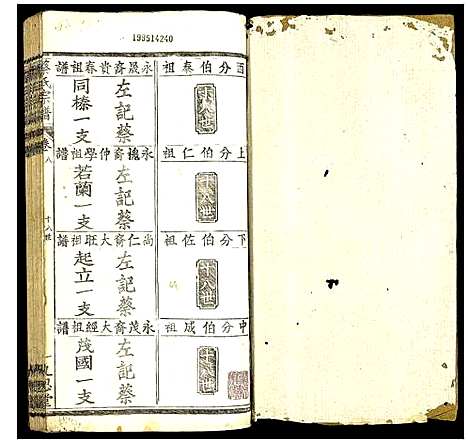 199514240
祖泰伯分酉
譜祖春貴裔晟永
左記蔡
同榛一支
十八世
祖仁伯分上
譜祖學仲裔槐永
左記蔡
若蘭一支
十八世
祖佐伯分下
譜祖旺大裔仁尚
左記蔡
起立一支
十八世
祖成伯分中
譜祖經大裔茂永
左記蔡
茂國一支
十八世
蔡氏宗譜
卷八
十八世
九思堂